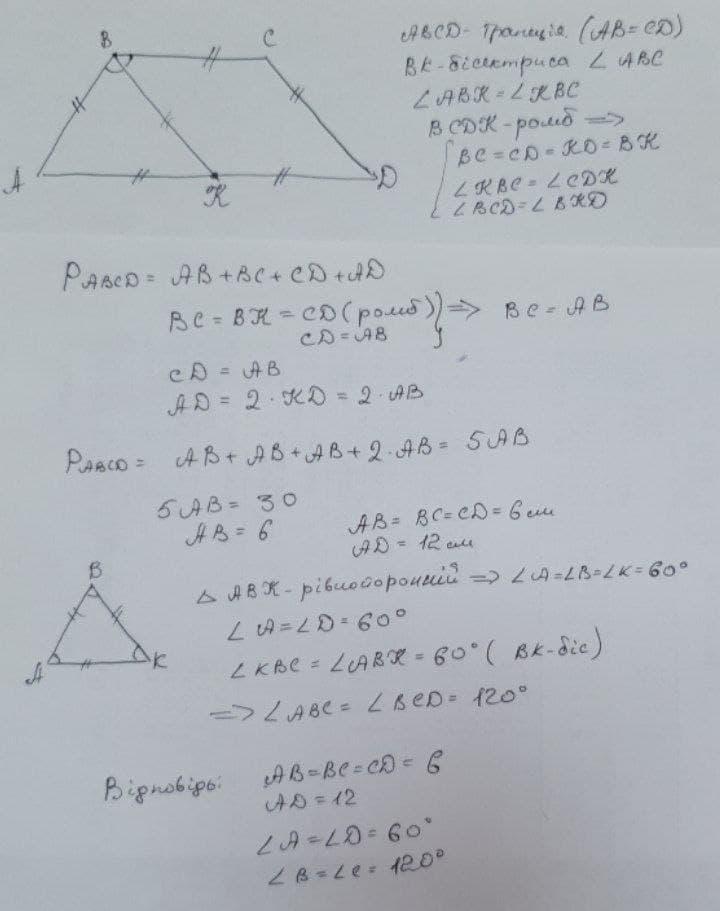 B C
A K D
ABCD - трапеція (AB = CD)
BK - бісектриса ∠ ABC
∠ ABK = ∠ KBC
BCDK - ромб =>
BC = CD = KD = BK
∠ KBC = ∠ CDK
∠ BCD = ∠ BKD
P ABCD = AB + BC + CD + AD
BC = BK = CD (ромб) } => BC = AB
CD = AB
CD = AB
AD = 2 · KD = 2 · AB
P ABCD = AB + AB + AB + 2 · AB = 5AB
5AB = 30
AB = 6
AB = BC = CD = 6 см
AD = 12 см
B
A K
△ ABK - рівносторонній => ∠A = ∠B = ∠K = 60°
∠ A = ∠ D = 60°
∠ KBC = ∠ ABK = 60° ( BK - біс)
=> ∠ ABC = ∠ BCD = 120°
Відповідь: AB = BC = CD = 6
AD = 12
∠ A = ∠ D = 60°
∠ B = ∠ C = 120°